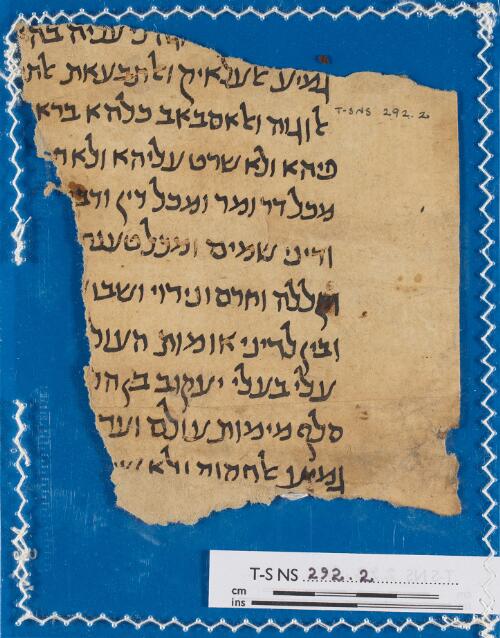 עניה
גמיע אלעלאיק ואלתבעאת
אלוגוה ואלאסבאב כלהא ברא
פיהא ולא שרט עליהא ולא
מכל דר ומר ומכל דין
ודיני שמים ומכל טענה
וקללה וחרם ונידוי ושבו
ובין לדיני אומות העול
עלי בעלי יעקוב בן הו
סלף מימות עולם ועד
גמיע ולא
T-S NS 292.2
T-S NS 292.2
cm
ins